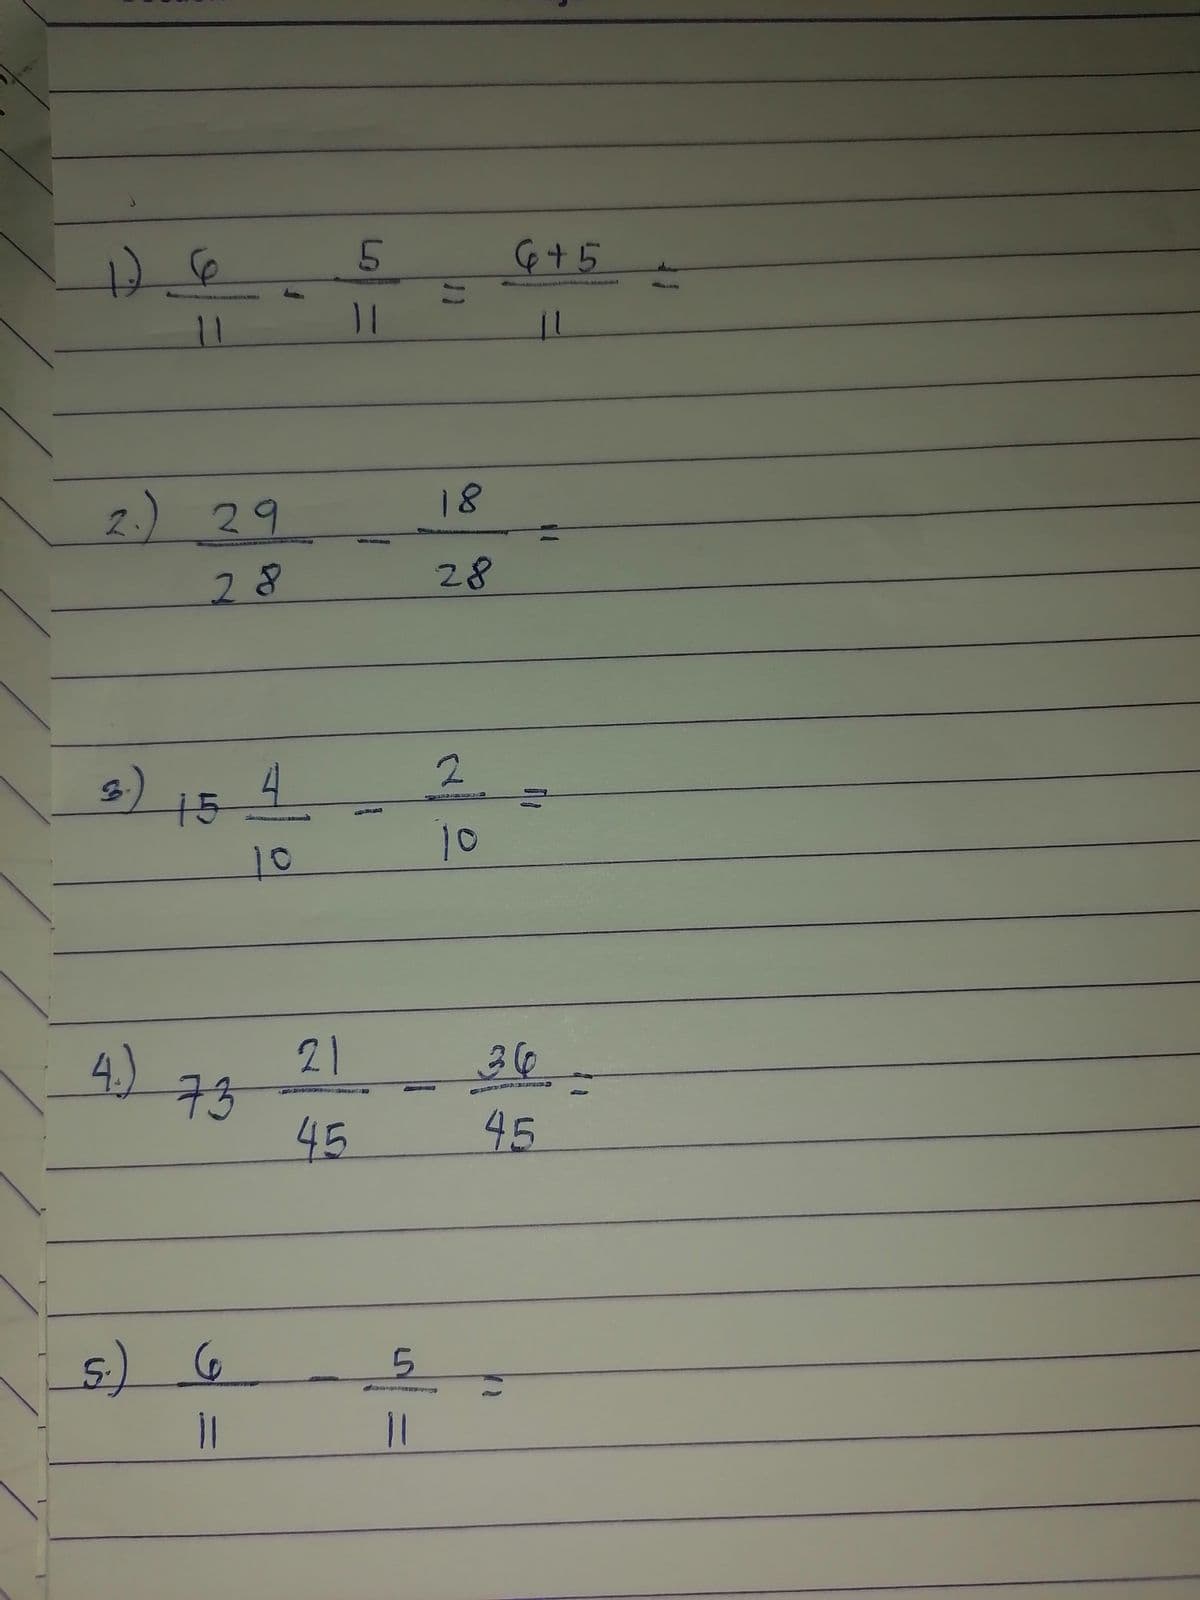 1.) 6/11 - 5/11 = 6+5/11 =
2.) 29/28 - 18/28 =
3.) 15 4/10 - 2/10 =
4.) 73 21/45 - 36/45 =
5.) 6/11 - 5/11 =